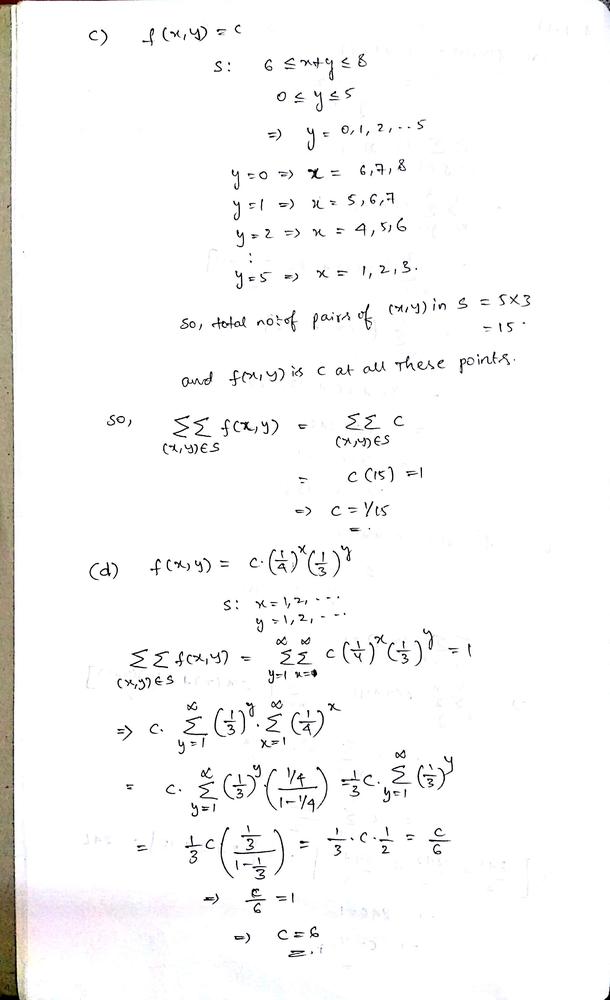 c) f(x,y) = c
S: 6 ≤ x+y ≤ 8
0 ≤ y ≤ 5
⇒ y = 0,1,2,..5
y=0 ⇒ x = 6,7,8
y=1 ⇒ x = 5,6,7
y=2 ⇒ x = 4,5,6
⋮
y=5 ⇒ x = 1,2,3.
So, total no: of pairs of (x,y) in S = 5×3
= 15.
and f(x,y) is c at all These points.
So, ΣΣ f(x,y) = ΣΣ c
(x,y)∈S (x,y)∈S
= c(15) = 1
⇒ c = 1/15
(d) f(x,y) = c.(1/4)^x (1/3)^y
S: x = 1,2,....
y = 1,2,....
ΣΣ_{(x,y)∈S} f(x,y) = Σ_{y=1}^∞ Σ_{x=1}^∞ c (1/4)^x (1/3)^y = 1
⇒ c. Σ_{y=1}^∞ (1/3)^y . Σ_{x=1}^∞ (1/4)^x
= c. Σ_{y=1}^∞ (1/3)^y . ((1/4)/(1-1/4)) = 1/3 c. Σ_{y=1}^∞ (1/3)^y
= 1/3 c ((1/3)/(1-1/3)) = 1/3 . c . 1/2 = c/6
⇒ c/6 = 1
⇒ c = 6